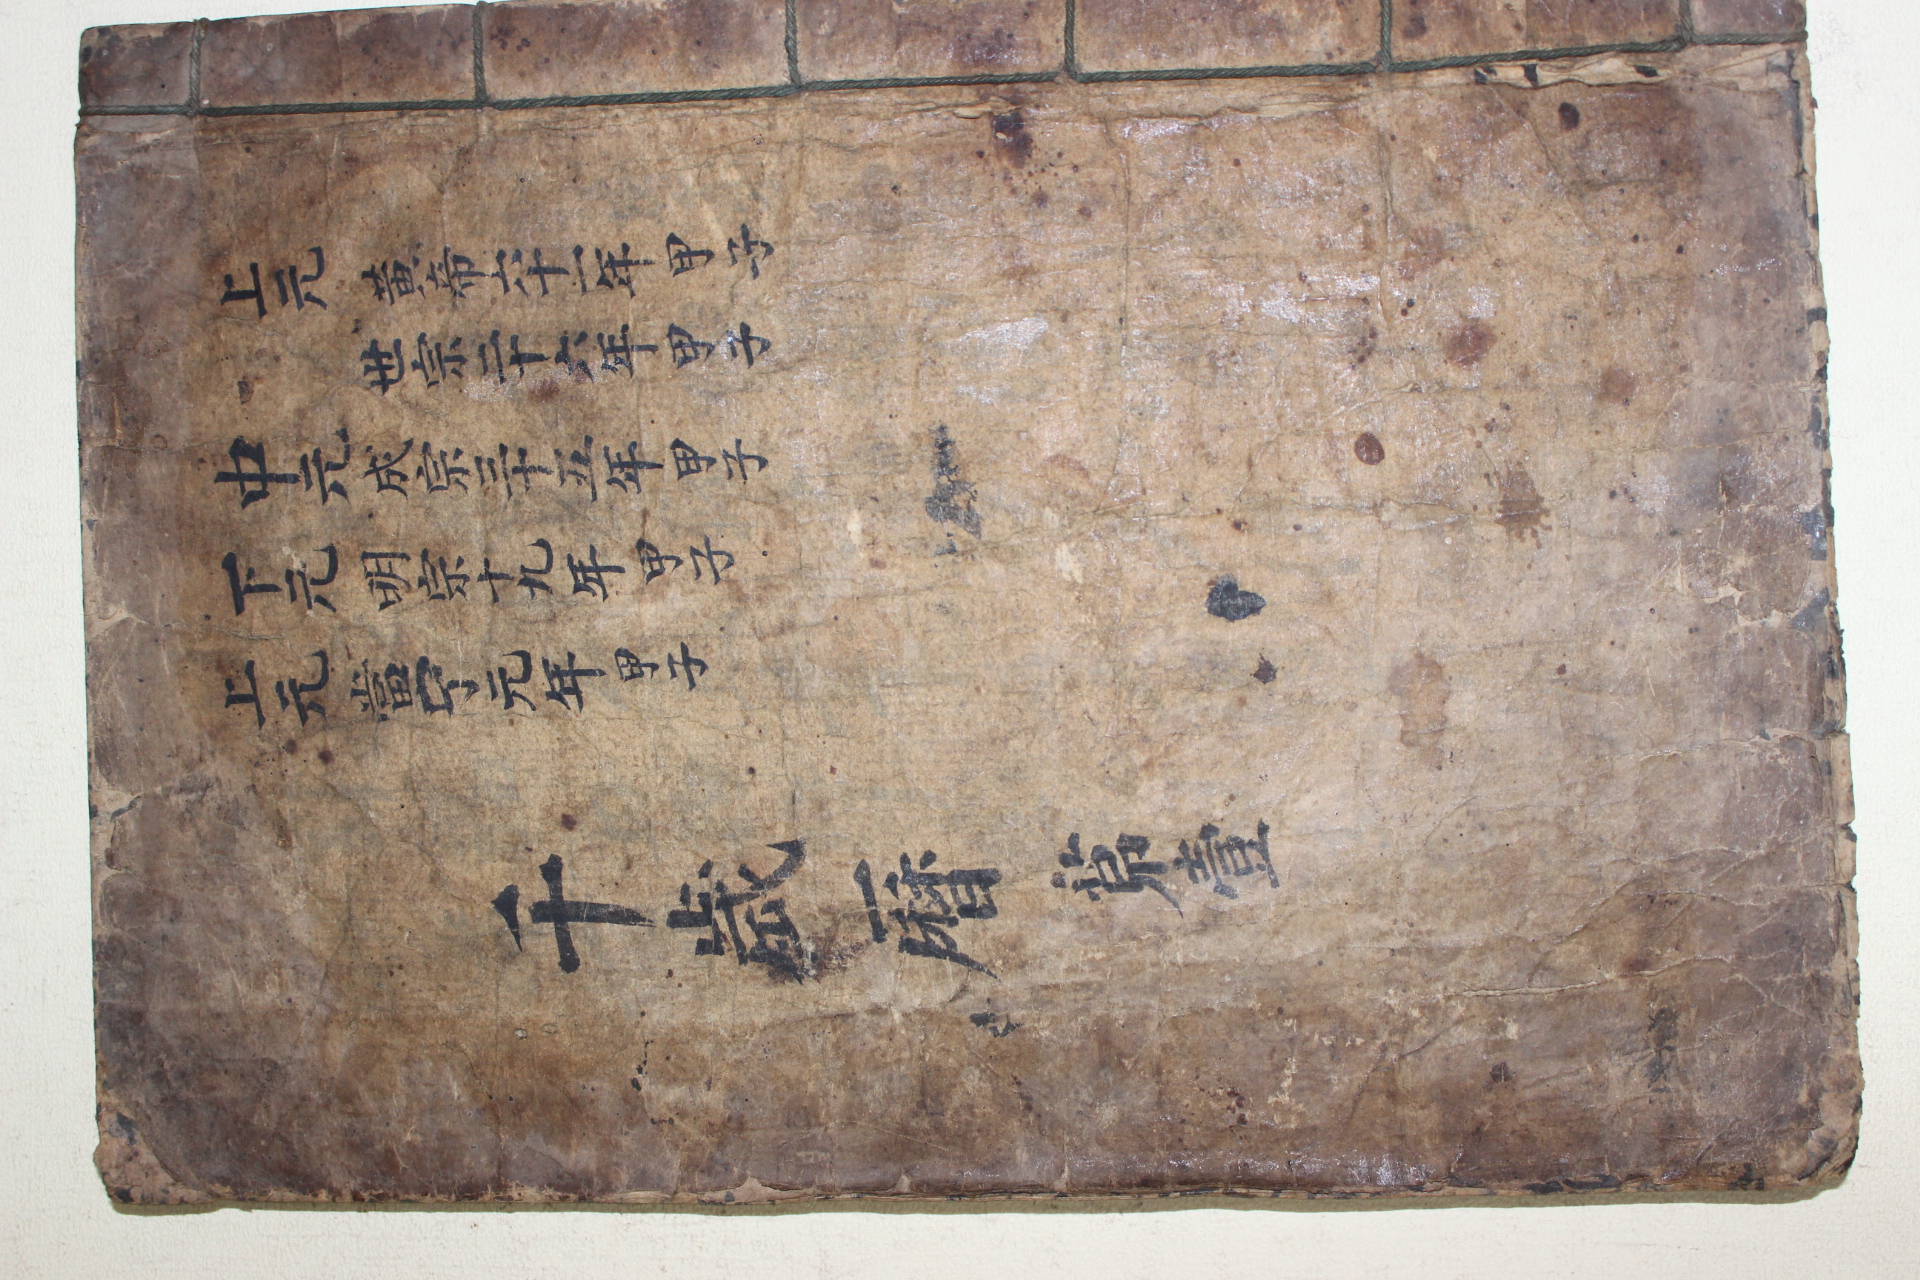 上元 黃帝六十一年 甲子
世宗二十六年 甲子
中元 成宗三十五年 甲子
下元 明宗十九年 甲子
上元 當宁元年 甲子
千歲曆 苐壹